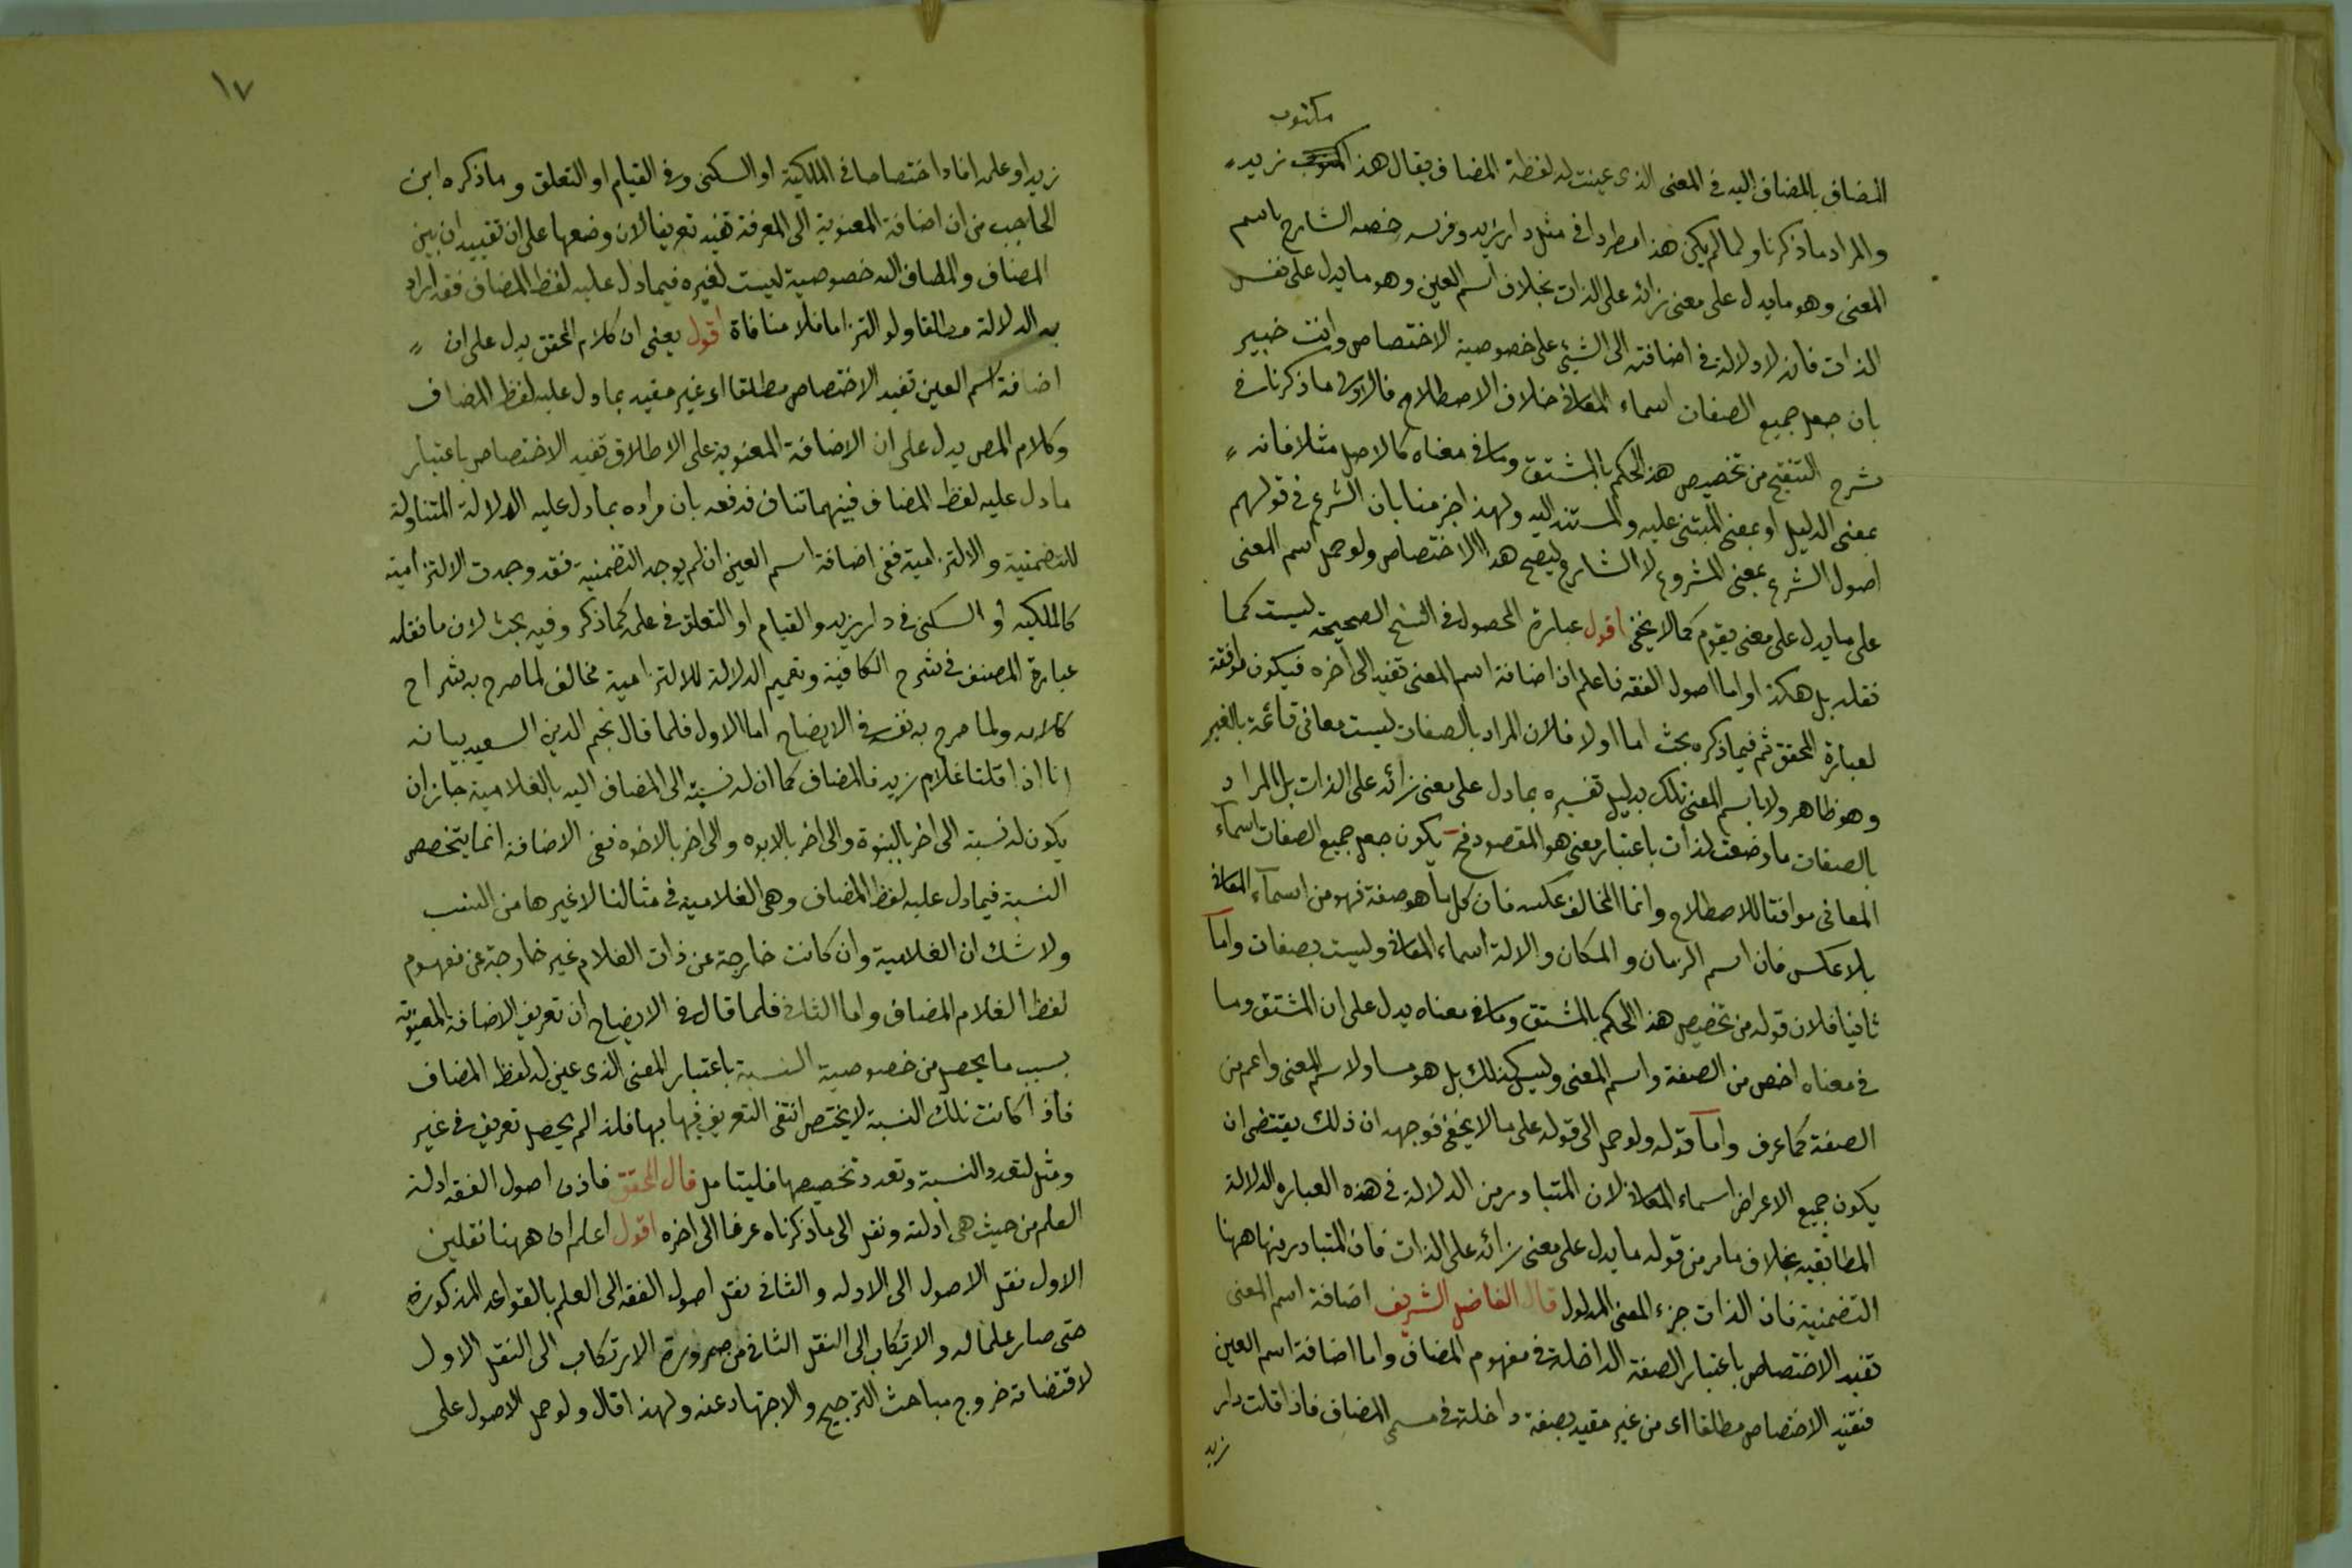 مكتوب
المضاف بالمضاف اليه في المعنى الذى عينت له لفظة المضاف يقال هذا المكتوب زيد
والمراد ما ذكرنا ولما لم يكن هذا مطردا في مثل دار زيد وفرسه خصه الشارح باسم
المعنى وهو ما يدل على معنى زائد على الذات بخلاف اسم العين وهو ما يدل على نفس
الذات فانه لا دلالة في اضافته الى الشيئ على خصوصية الاختصاص وانت خبير
بان جعل جميع الصفات اسماء المعانى خلاف الاصطلاح فالاولى ما ذكرنا في
شرح التنقيح من تخصيص هذا الحكم بالمشتق وما في معناه كالاصل مثلا فانه
بمعنى الدليل او بمعنى المبتنى عليه والمستند اليه ولهذا جزمنا بان الشرع في قولهم
اصول الشرع بمعنى المشروع لا الشارع ليصح هذا الاختصاص ولو حمل اسم المعنى
على ما يدل على معنى يقوم كما لا يخفى اقول عبارة المحصول في النسخ الصحيحة ليست كما
نقله بل هكذا واما اصول الفقه فاعلم ان اضافة اسم المعنى تفيد الى آخره فيكون موافقة
لعبارة المحقق ثم فيما ذكره بحث اما اولا فلان المراد بالصفات ليست معانى قائمة بالغير
وهو ظاهر ولا باسم المعنى تلك بدليل تفسيره بما دل على معنى زائد على الذات بل المراد
بالصفات ما وضعت لذات باعتبار معنى هو المقصود فح يكون جعل جميع الصفات اسماء
المعانى موافقا للاصطلاح وانما المخالف عكسه فان كل ما هو صفة فهو من اسماء المعانى
بلا عكس فان اسم الزمان والمكان والالة اسماء المعانى وليست بصفات واما
ثانيا فلان قوله من تخصيص هذا الحكم بالمشتق وما في معناه يدل على ان المشتق وما
في معناه اخص من الصفة واسم المعنى وليس كذلك بل هو مساو لاسم المعنى واعم من
الصفة كما عرف واما قوله ولو حمل الى قوله على ما لا يخفى فوجهه ان ذلك يقتضى ان
يكون جميع الاعراض اسماء المعانى لان المتبادر من الدلالة في هذه العباره الدلالة
المطابقيه بخلاف ما مر من قوله ما يدل على معنى زائد على الذات فان المتبادر منها ههنا
التضمنية فان الذات جزء المعنى المدلول قال الفاضل الشريف اضافة اسم المعنى
تفيد الاختصاص باعتبار الصفة الداخلة في مفهوم المضاف واما اضافة اسم العين
فتفيد الاختصاص مطلقا اى من غير مقيد بصفة داخلة في مسمى المضاف فاذا قلت دار
زيد
١٧
زيد او علمه افادا ختصاصا في الملكية او السكنى وفى القيام او التعلق وما ذكره ابن
الحاجب من ان اضافة المعنوية الى المعرفة تفيد تعريفا لان وضعها على ان تقييد ان بين
المضاف والمضاف اليه خصوصية ليست لغيره فيما دل عليه لفظ المضاف فقد اراد
به الدلالة مطلقا ولو التزاما فلا منافاة اقول يعنى ان كلام المحقق يدل على ان
اضافة اسم العين تفيد الاختصاص مطلقا اى غير مقيد بما دل عليه لفظ المضاف
وكلام المص يدل على ان الاضافة المعنوية على الاطلاق تفيد الاختصاص باعتبار
ما دل عليه لفظ المضاف فبينهما تناف فدفعه بان مراده بما دل عليه الدلالة المتناولة
للتضمنية والالتزامية ففى اضافة اسم العين ان لم يوجد التضمنية فقد وجدت الالتزامية
كالملكيه او السكنى في دار زيد والقيام او التعلق في علمه كما ذكر وفيه بحث لان ما نقله
عبارة المصنف في شرح الكافية وتعميم الدلالة للالتزامية مخالف لما صرح به شراح
كلامه ولما صرح به نفسه في الايضاح اما الاول فلما قال نجم الدين السعيد بيانه
انا اذا قلنا غلام زيد فالمضاف كما ان له نسبة الى المضاف اليه بالغلامية جاز ان
يكون له نسبة الى اخر بالبنوة والى اخر بالابوه والى اخر بالاخوه ففى الاضافة انما يتخصص
النسبة فيما دل عليه لفظ المضاف وهى الغلامية في مثالنا لا غيرها من النسب
ولا شك ان الغلامية وان كانت خارجة عن ذات الغلام غير خارجة عن مفهوم
لفظ الغلام المضاف واما الثانى فلما قال في الايضاح ان تعريف الاضافة المعنوية
بسبب ما يحصل من خصوصية النسبة باعتبار المعنى الذى عين له لفظ المضاف
فاذا كانت تلك النسبة لا يختص انتفى التعريف فيها بها فلذا لم يحصل تعريف في غير
ومثل لتعدد النسبة وتعدد تخصيصها فليتامل قال المحقق فاذن اصول الفقه ادلة
العلم من حيث هى ادلته ونقل الى ما ذكرناه عرفا الى اخره اقول اعلم ان ههنا نقلين
الاول نقل الاصول الى الادله والثانى نقل اصول الفقه الى العلم بالقواعد المذكورة
حتى صار علما له والارتكاب الى النقل الثانى من ضرورة الارتكاب الى النقل الاول
لاقتضائه خروج مباحث الترجيح والاجتهاد عنه ولهذا قال ولو حمل الاصول على